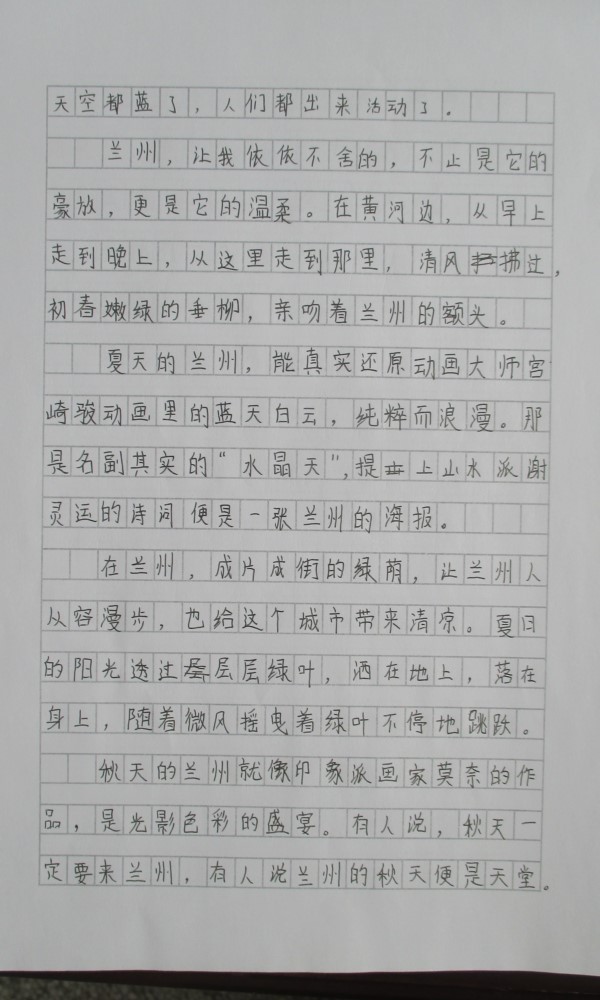 天空都蓝了，人们都出来活动了。
兰州，让我依依不舍的，不止是它的
豪放，更是它的温柔。在黄河边，从早上
走到晚上，从这里走到那里，清风拂过，
初春嫩绿的垂柳，亲吻着兰州的额头。
夏天的兰州，能真实还原动画大师宫
崎骏动画里的蓝天白云，纯粹而浪漫。那
是名副其实的“水晶天”，提上山水派谢
灵运的诗词便是一张兰州的海报。
在兰州，成片成街的绿荫，让兰州人
从容漫步，也给这个城市带来清凉。夏日
的阳光透过层层绿叶，洒在地上，落在
身上，随着微风摇曳着绿叶不停地跳跃。
秋天的兰州就像印象派画家莫奈的作
品，是光影色彩的盛宴。有人说，秋天一
定要来兰州，有人说兰州的秋天便是天堂。